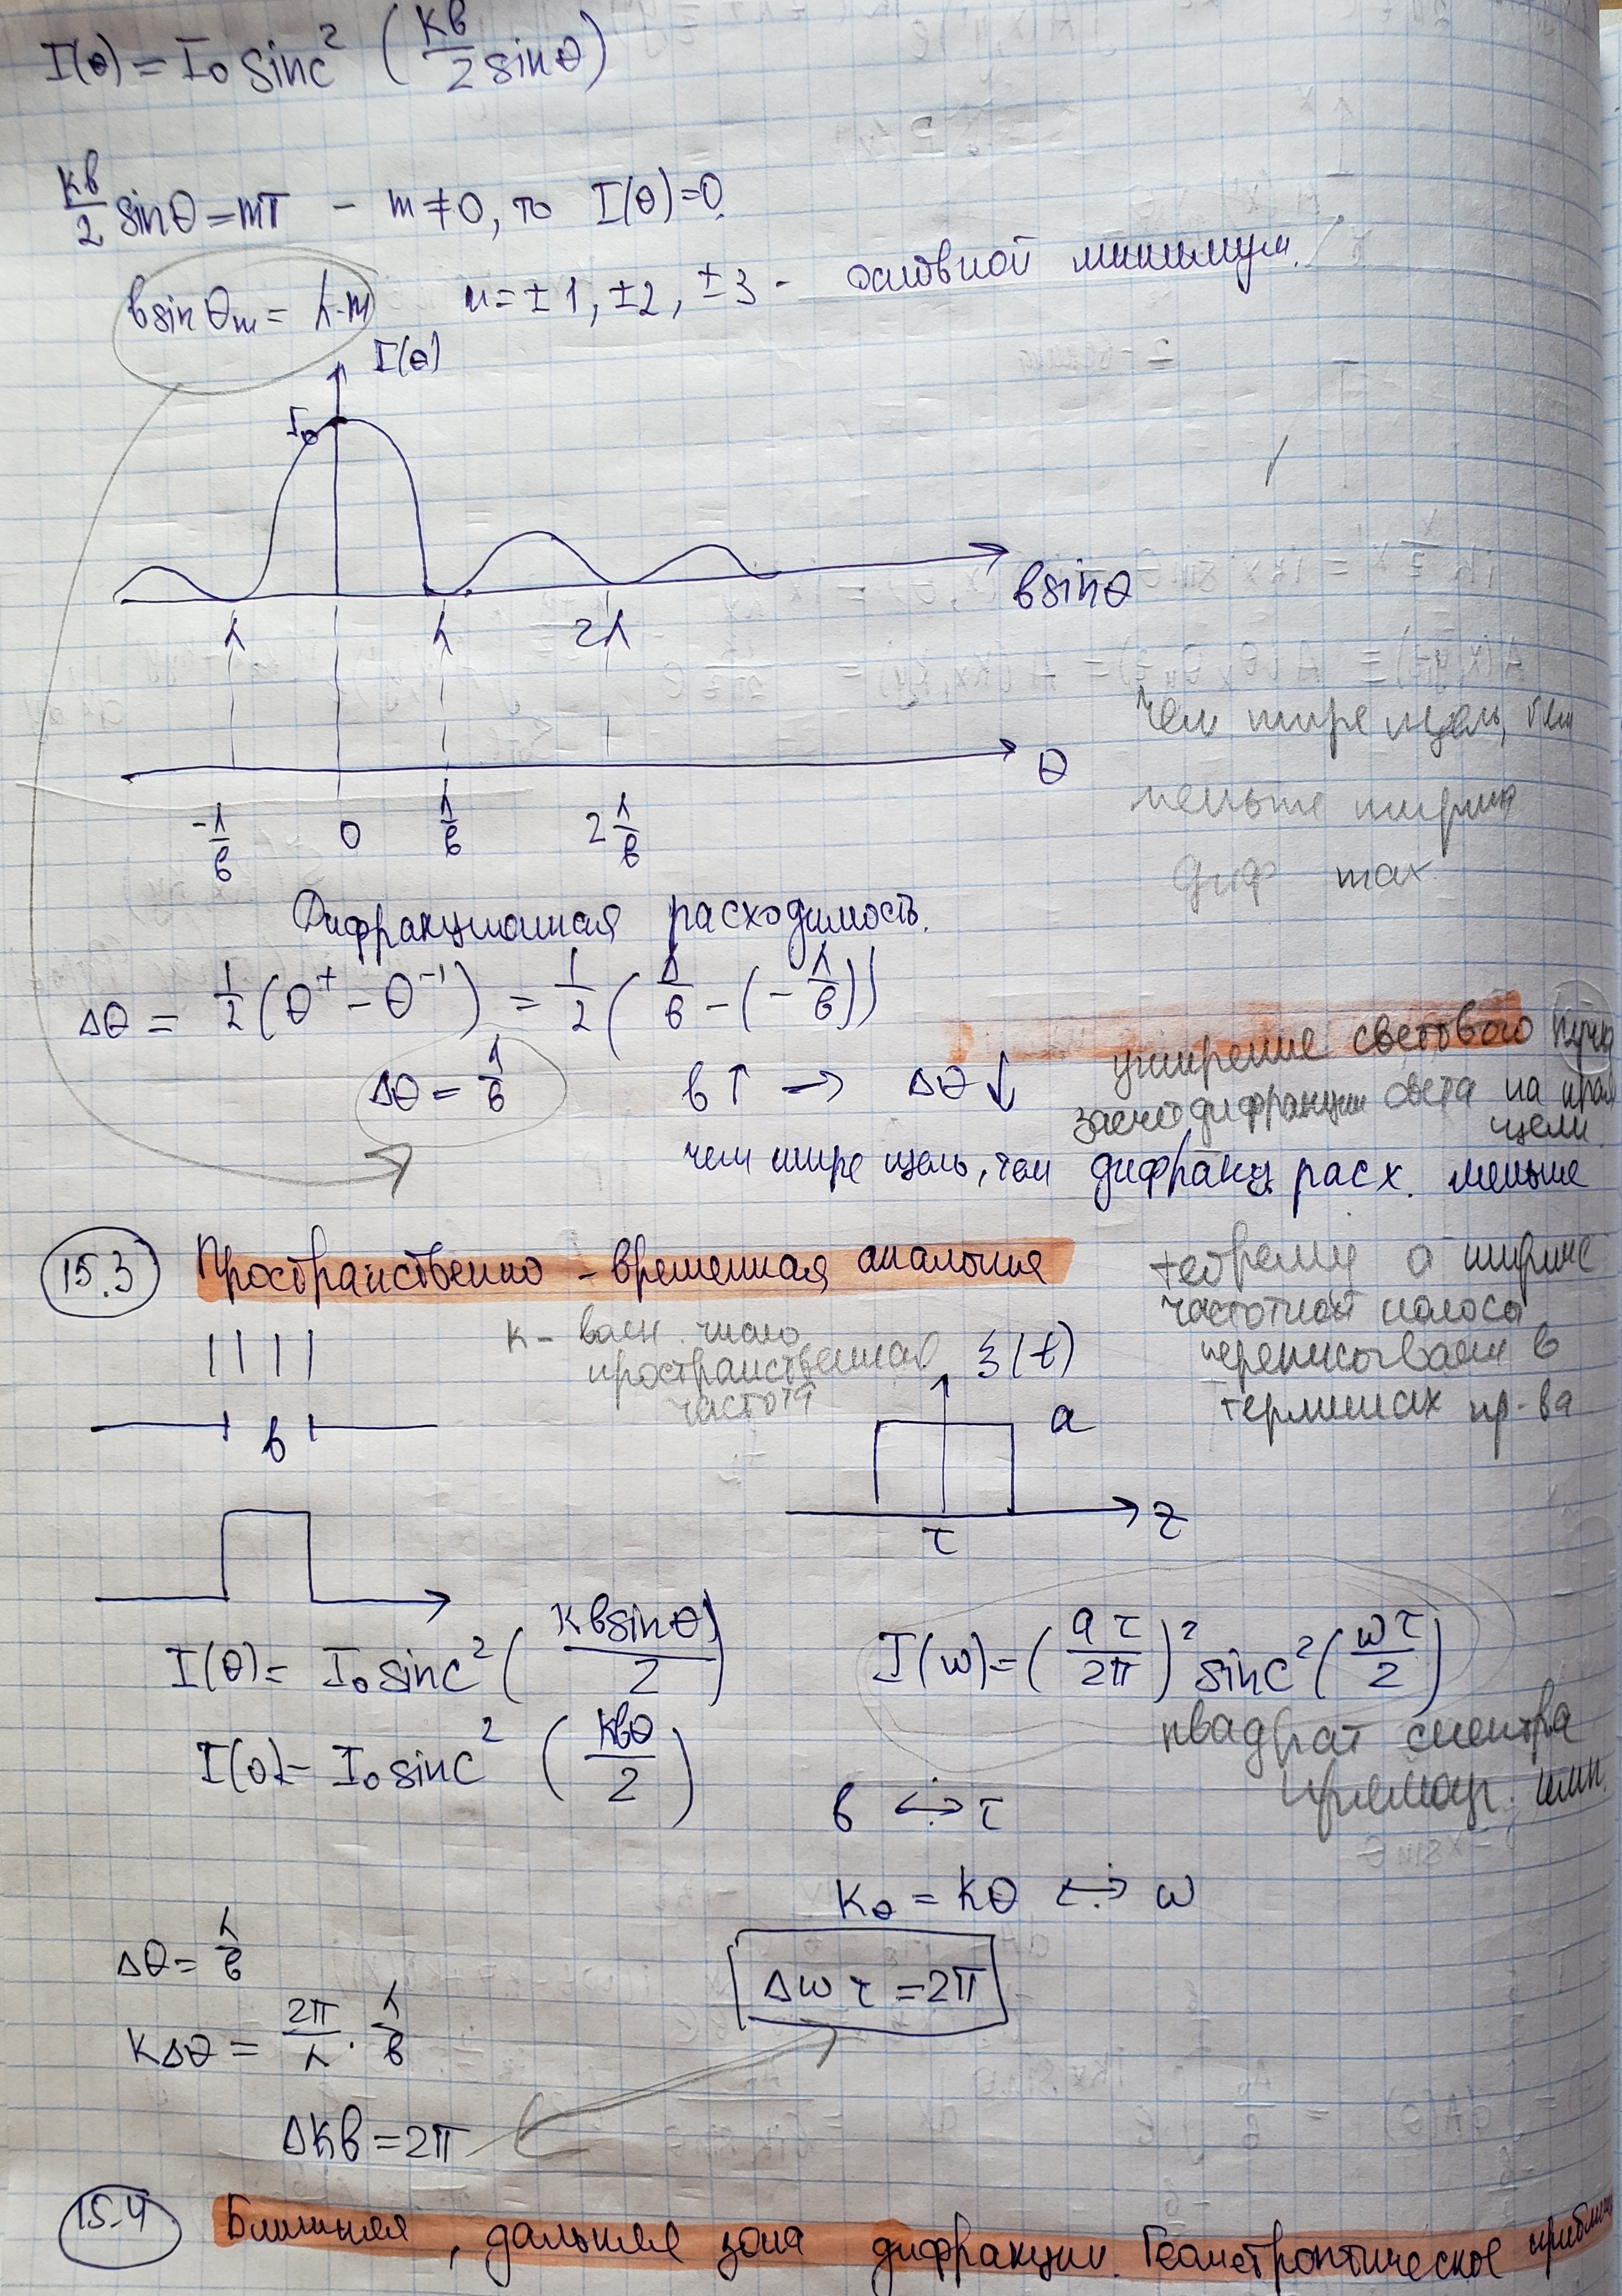 I(θ) = I₀ sinc² (kb/2 sinθ)
kb/2 sinθ = mπ – m ≠ 0, то I(θ)=0
b sin θₘ = λ·m   m = ±1, ±2, ±3 – основной минимум.
I(θ)
I₀
b sinθ
λ   λ   2λ
чем шире щель, тем
меньше ширина
диф max.
θ
-λ/b   0   λ/b   2 λ/b
Дифракционная расходимость.
Δθ = 1/2 (θ⁺ – θ⁻¹) = 1/2 (λ/b – (– λ/b))
Δθ = λ/b   b↑ → Δθ↓
уширение светового пучка
за счёт дифракции света на краях
щели.
чем шире щель, тем дифракц. расх. меньше
15.3 Пространственно - временная аналогия
теорему о ширине
частотной полосы
переписываем в
терминах пр-ва
k – волн. число
пространственная
частота
ξ(t)
a
b
τ
z
I(θ) = I₀ sinc² (kb sinθ / 2)
J(ω) = (aτ/2π)² sinc² (ωτ/2)
I(θ) = I₀ sinc² (kbθ/2)
квадрат спектра
прямоуг. имп.
b ↔ τ
k_θ = kθ ↔ ω
Δθ = λ/b
Δω τ = 2π
kΔθ = 2π/λ · λ/b
Δkb = 2π
15.4 Ближняя, дальняя зона дифракции. Геометрооптическое